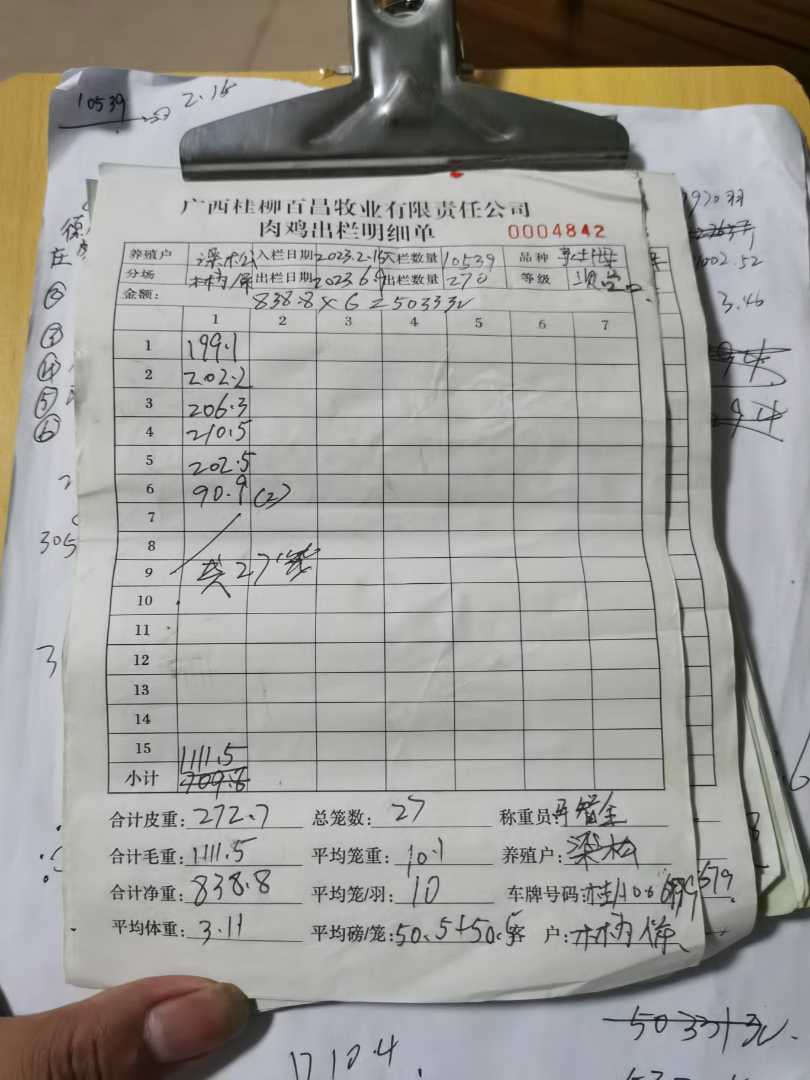 10539
2.15
广西桂柳百昌牧业有限责任公司
肉鸡出栏明细单 0004842
养殖户 梁松 入栏日期 2023.2.15 入栏数量 10539 品种
分场 出栏日期 2023.6.9 出栏数量 270 等级
金额: 838.8×6=5033元
1 2 3 4 5 6 7
1 199.1
2 202.2
3 206.3
4 210.5
5 202.5
6 90.9 (2)
7
8
9 共27笼
10
11
12
13
14
15 1111.5
小计 709.8
合计皮重: 272.7 总笼数: 27 称重员:
合计毛重: 1111.5 平均笼重: 10.1 养殖户: 梁松
合计净重: 838.8 平均笼/羽: 10 车牌号码:
平均体重: 3.11 平均磅/笼: 50.5+50.5 客 户:
1002.52
3.46
305
17104